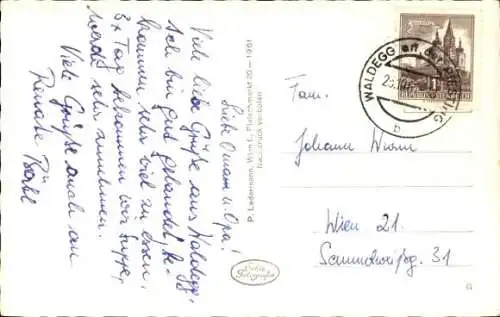 Liebe Omama u. Opa!
Viele liebe Grüße aus Waldegg.
Ich bin gut gelandet. Be-
kommen sehr viel zu essen.
3x Tag bekommen wir Suppe,
werde sehr zunehmen.
Viele Grüße auch an
Renate
P. Ledermann, Wien I., Fleischmarkt 20 — 1961
Nachdruck verboten
Echte
Fotografie
WALDEGG an der
b
REPUBLIK ÖSTERREICH
Fam.
Johann Wurm
Wien 21.
31